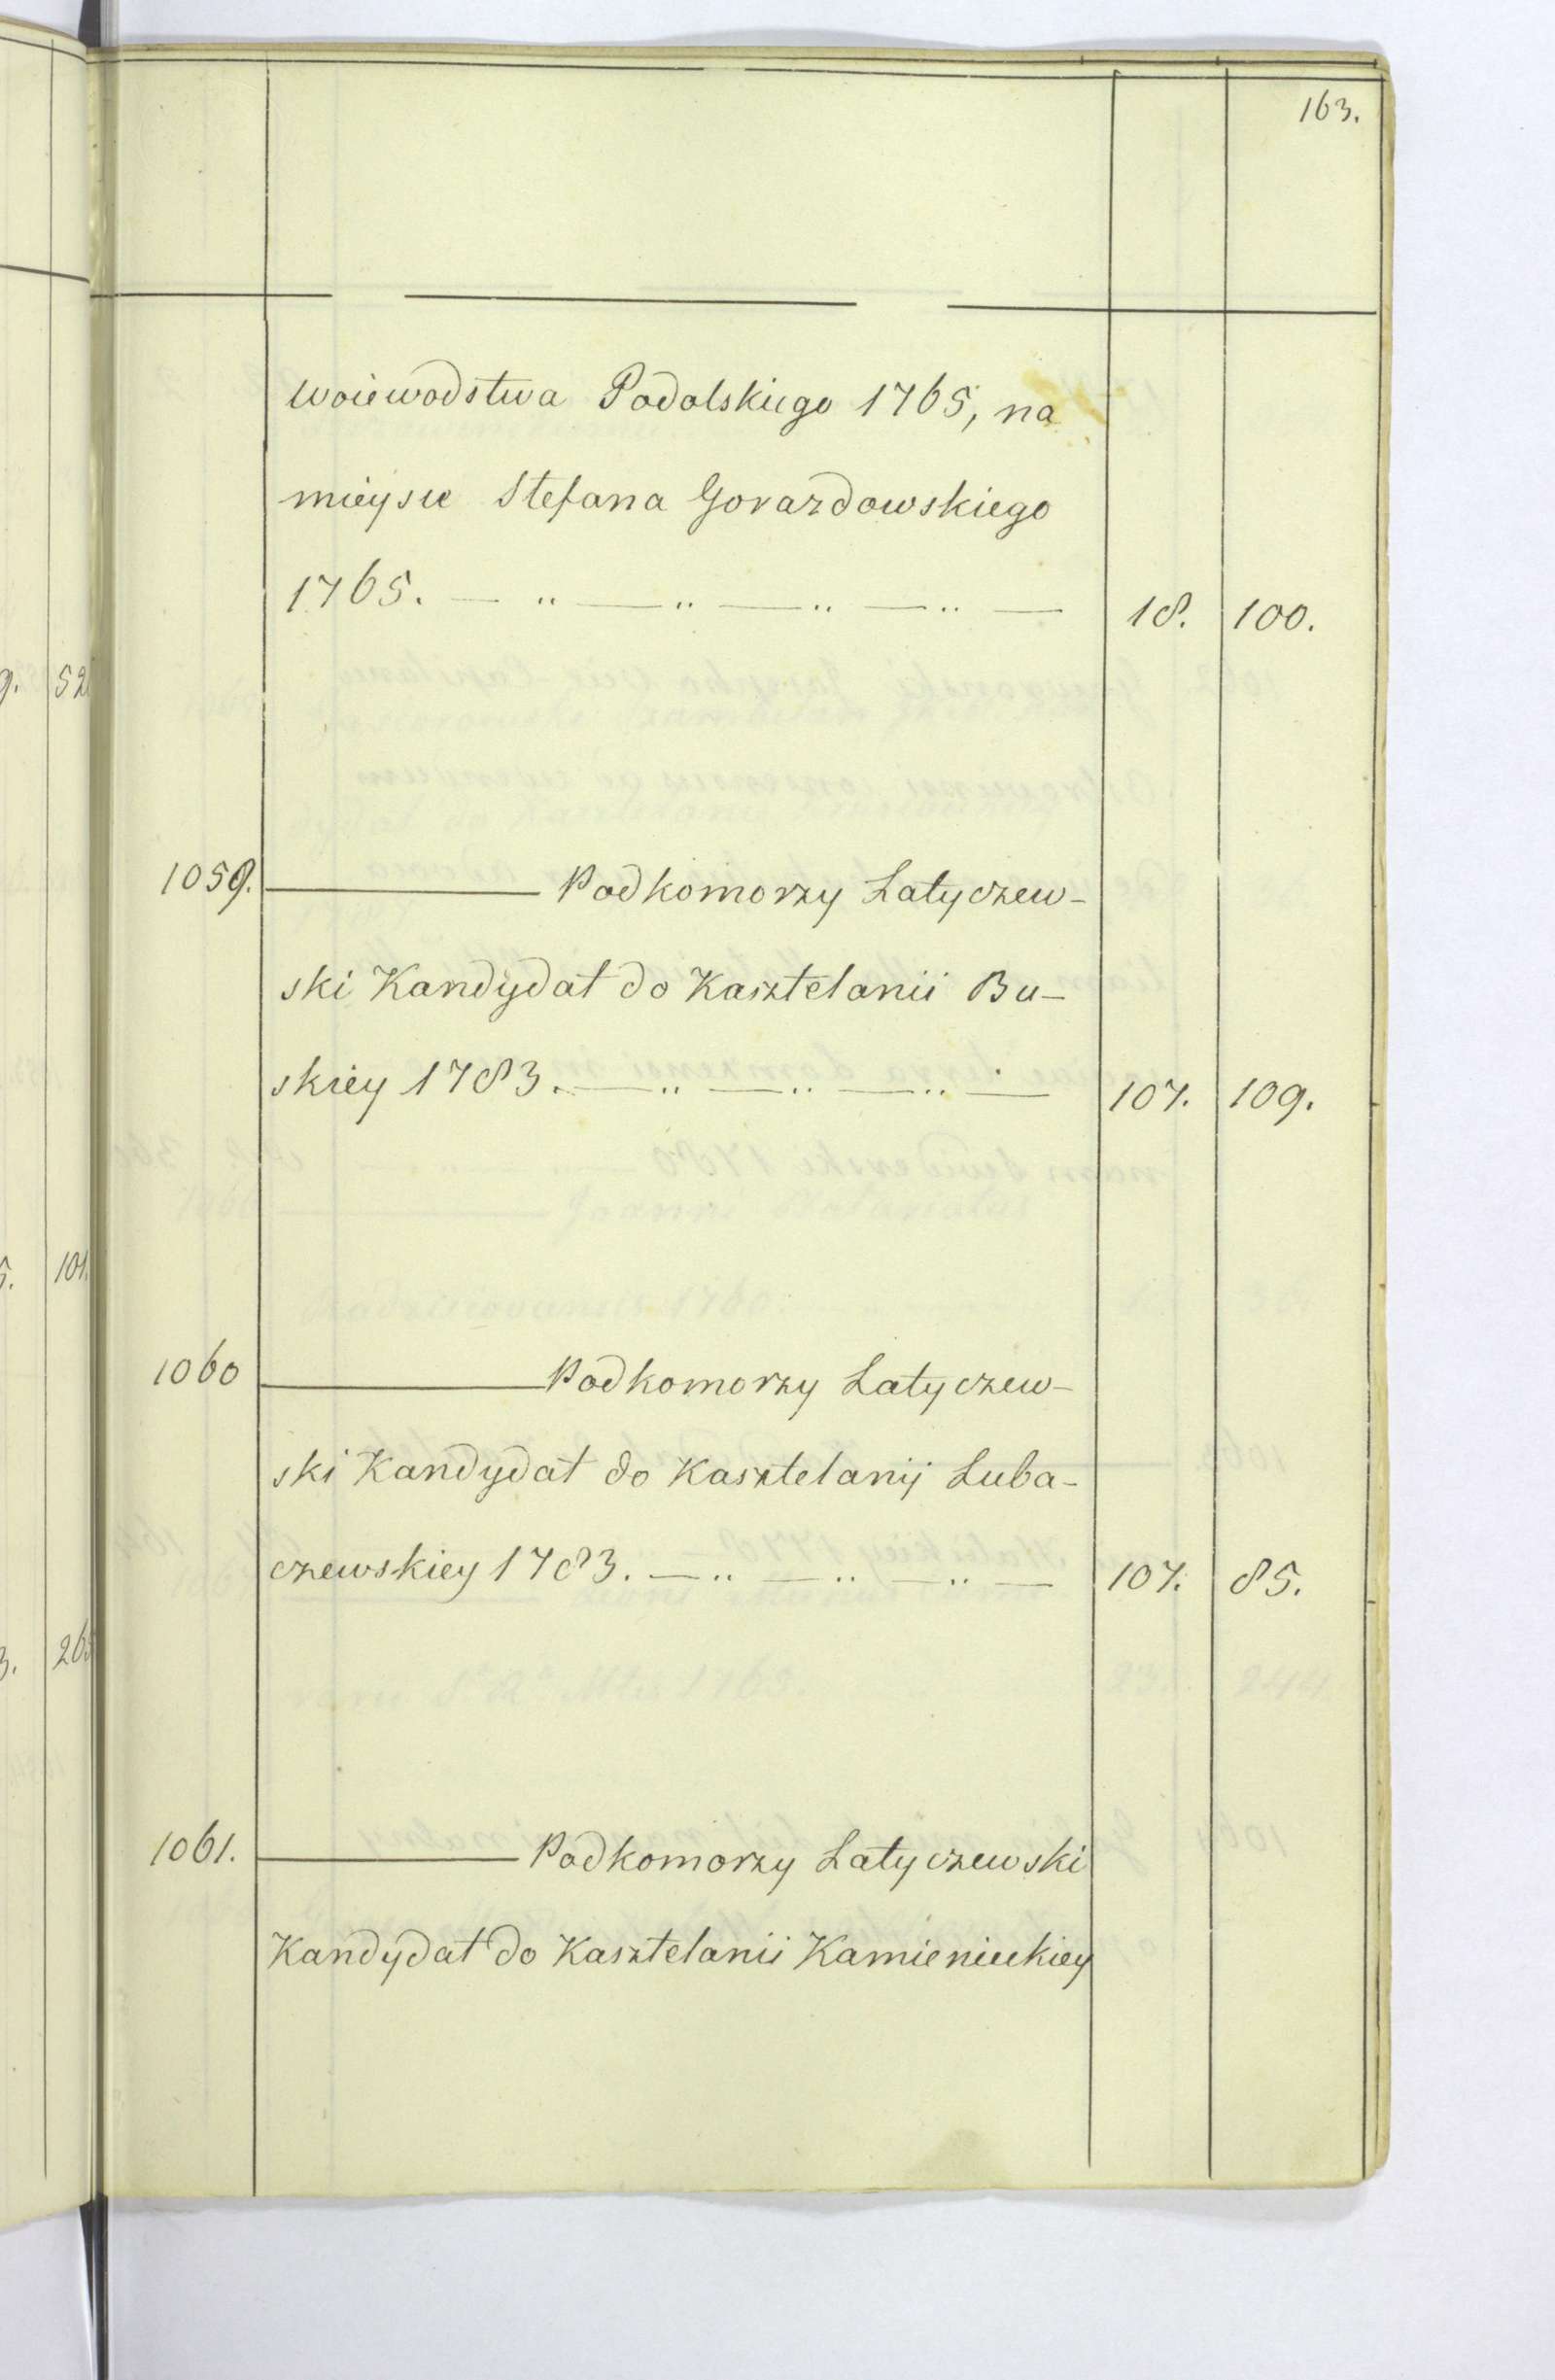 163.
woiewodstwa Podolskiego 1765, na
mieysce Stefana Gorazdowskiego
1765. — „ — „ — „ — „ — 18. 100.
1059. ——— Podkomorzy Latyczew-
ski Kandydat do Kasztelanii Bu-
skiey 1783. — „ — „ — „ — 107. 109.
1060 ——— Podkomorzy Latyczew-
ski Kandydat do Kasztelanij Luba-
czewskiey 1783. — „ — „ — „ — 107. 85.
1061. ——— Podkomorzy Latyczewski
Kandydat do Kasztelanii Kamienieckiey